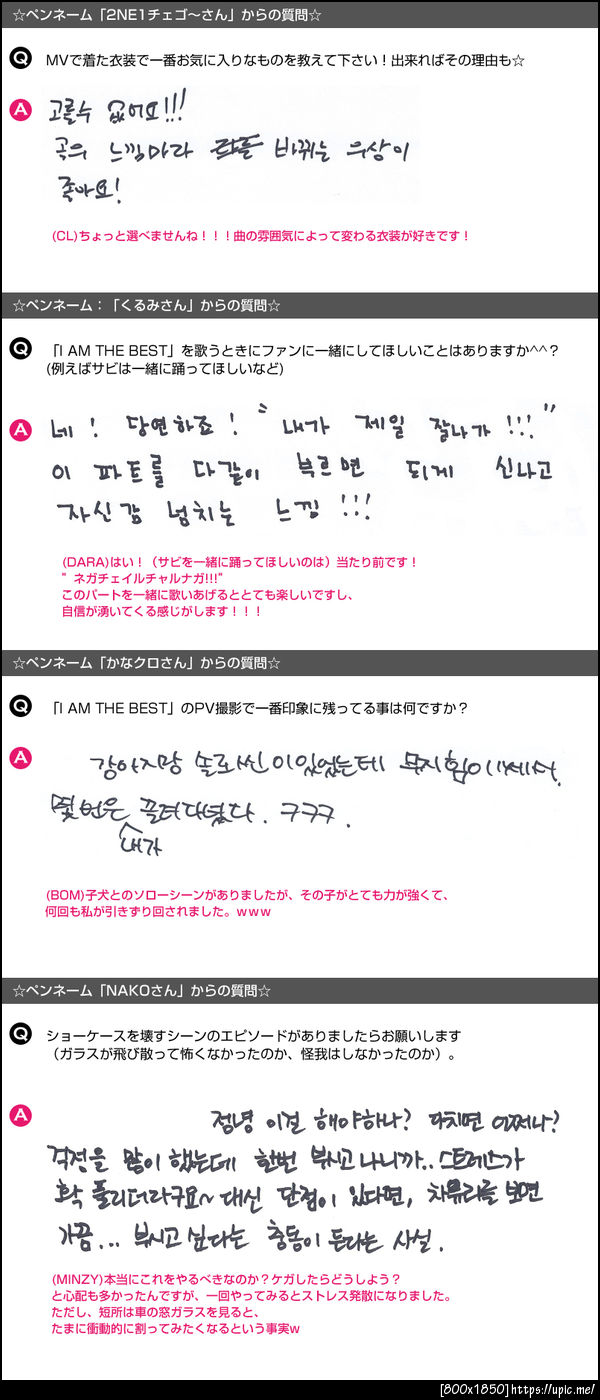 ☆ペンネーム「2NE1チェゴ～さん」からの質問☆
Q MVで着た衣装で一番お気に入りなものを教えて下さい！出来ればその理由も☆
A 고를수 없어요!!!
곡의 느낌마다 바뀌는 의상이
좋아요!
(CL)ちょっと選べませんね！！！曲の雰囲気によって変わる衣装が好きです！
☆ペンネーム：「くるみさん」からの質問☆
Q 「I AM THE BEST」を歌うときにファンに一緒にしてほしいことはありますか^^？
(例えばサビは一緒に踊ってほしいなど)
A 네! 당연하죠! "내가 제일 잘나가!!!"
이 파트를 다같이 부르면 되게 신나고
자신감 넘치는 느낌!!!
(DARA)はい！（サビを一緒に踊ってほしいのは）当たり前です！
”ネガチェイルチャルナガ!!!”
このパートを一緒に歌いあげるととても楽しいですし、
自信が湧いてくる感じがします！！！
☆ペンネーム「かなクロさん」からの質問☆
Q 「I AM THE BEST」のPV撮影で一番印象に残ってる事は何ですか？
A 강아지랑 솔로씬이있었는데 무지힘이쎄서.
몇번은 끌려다녔다. ㅋㅋㅋ.
내가
(BOM)子犬とのソローシーンがありましたが、その子がとても力が強くて、
何回も私が引きずり回されました。ｗｗｗ
☆ペンネーム「NAKOさん」からの質問☆
Q ショーケースを壊すシーンのエピソードがありましたらお願いします
（ガラスが飛び散って怖くなかったのか、怪我はしなかったのか）。
A 정녕 이걸 해야하나? 다치면 어쩌나?
걱정을 많이 했는데 한번 부시고 나니까.. 스트레스가
확 풀리더라구요~ 대신 단점이 있다면, 차유리를 보면
가끔... 부시고 싶다는 충동이 든다는 사실.
(MINZY)本当にこれをやるべきなのか？ケガしたらどうしよう？
と心配も多かったんですが、一回やってみるとストレス発散になりました。
ただし、短所は車の窓ガラスを見ると、
たまに衝動的に割ってみたくなるという事実w
[800x1850]https://upic.me/